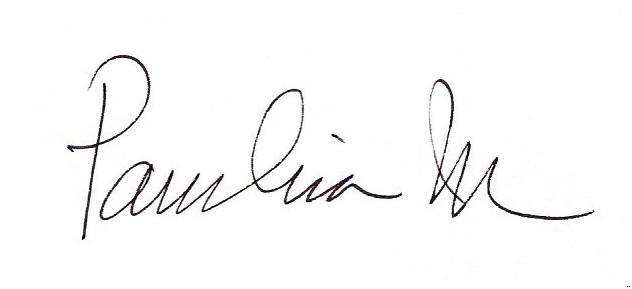 Paulina M